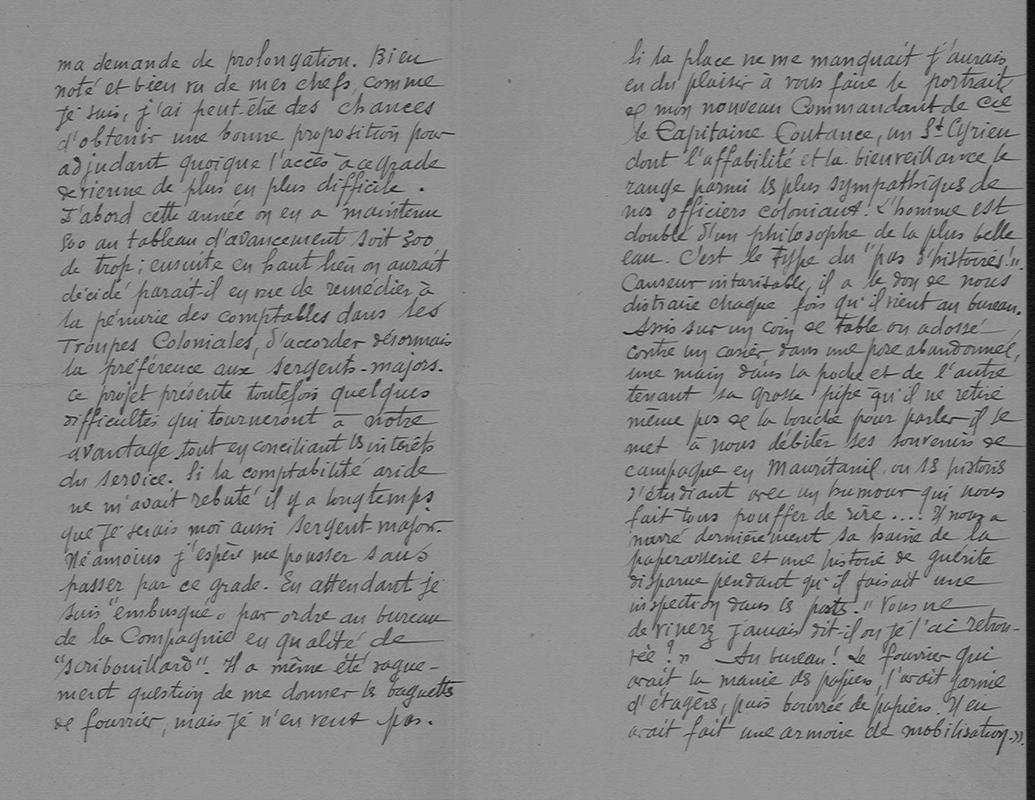 ma demande de prolongation. Bien
noté et bien vu de mes chefs, comme
je suis, j'ai peut-être des chances
d'obtenir une bonne proposition pour
adjudant quoique l'accès à ce grade
devienne de plus en plus difficile.
D'abord cette année on en a maintenu
500 au tableau d'avancement soit 300
de trop; ensuite en haut lieu on aurait
décidé parait-il en vue de remédier à
la pénurie des comptables dans les
Troupes Coloniales, d'accorder désormais
la préférence aux sergents-majors.
Ce projet présente toutefois quelques
difficultés qui tourneront à notre
avantage tout en conciliant les intérêts
du service. Si la comptabilité aride
ne m'avait rebuté il y a longtemps
que je serais moi aussi sergent-major.
Néamoins j'espère me pousser sans
passer par ce grade. En attendant je
suis "embusqué" par ordre au bureau
de la Compagnie en qualité de
"scribouillard". Il a même été vague-
ment question de me donner les baguettes
de fourrier, mais je n'en veux pas.
Si la place ne me manquait j'aurais
eu du plaisir à vous faire le portrait
de mon nouveau Commandant de Cie
le Capitaine Coutance, un St Cyrien
dont l'affabilité et la bienveillance le
range parmi les plus sympathiques de
nos officiers coloniaux. L'homme est
doublé d'un philosophe de la plus belle
eau. C'est le type du "pas d'histoires!".
Causeur intarissable, il a le don de nous
distraire chaque fois qu'il vient au bureau.
Assis sur un coin de table ou adossé
contre un casier dans une pose abandonnée,
une main dans la poche et de l'autre
tenant sa grosse pipe qu'il ne retire
même pas de la bouche pour parler il se
met à nous débiter ses souvenirs de
campagne en Mauritanie, ou ses histoires
d'étudiant avec un humour qui nous
fait tous pouffer de rire.... Il nous a
narré dernièrement sa haine de la
paperasserie et une histoire de guérite
disparue pendant qu'il faisait une
inspection dans les postes. "Vous ne
devinerez jamais dit-il où je l'ai retrou-
vée?" Au bureau! Le fourrier qui
avait la manie des papiers, l'avait garnie
d'étagères, puis bourrée de papiers. Il en
avait fait une armoire de mobilisation.»